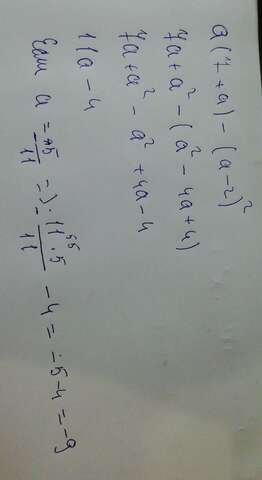 a(7+a) - (a-2)²
7a+a² - (a² - 4a+4)
7a+a² - a² + 4a - 4
11a - 4
Если a = -5/11 => - 11·5/11 - 4 = -5-4 = -9